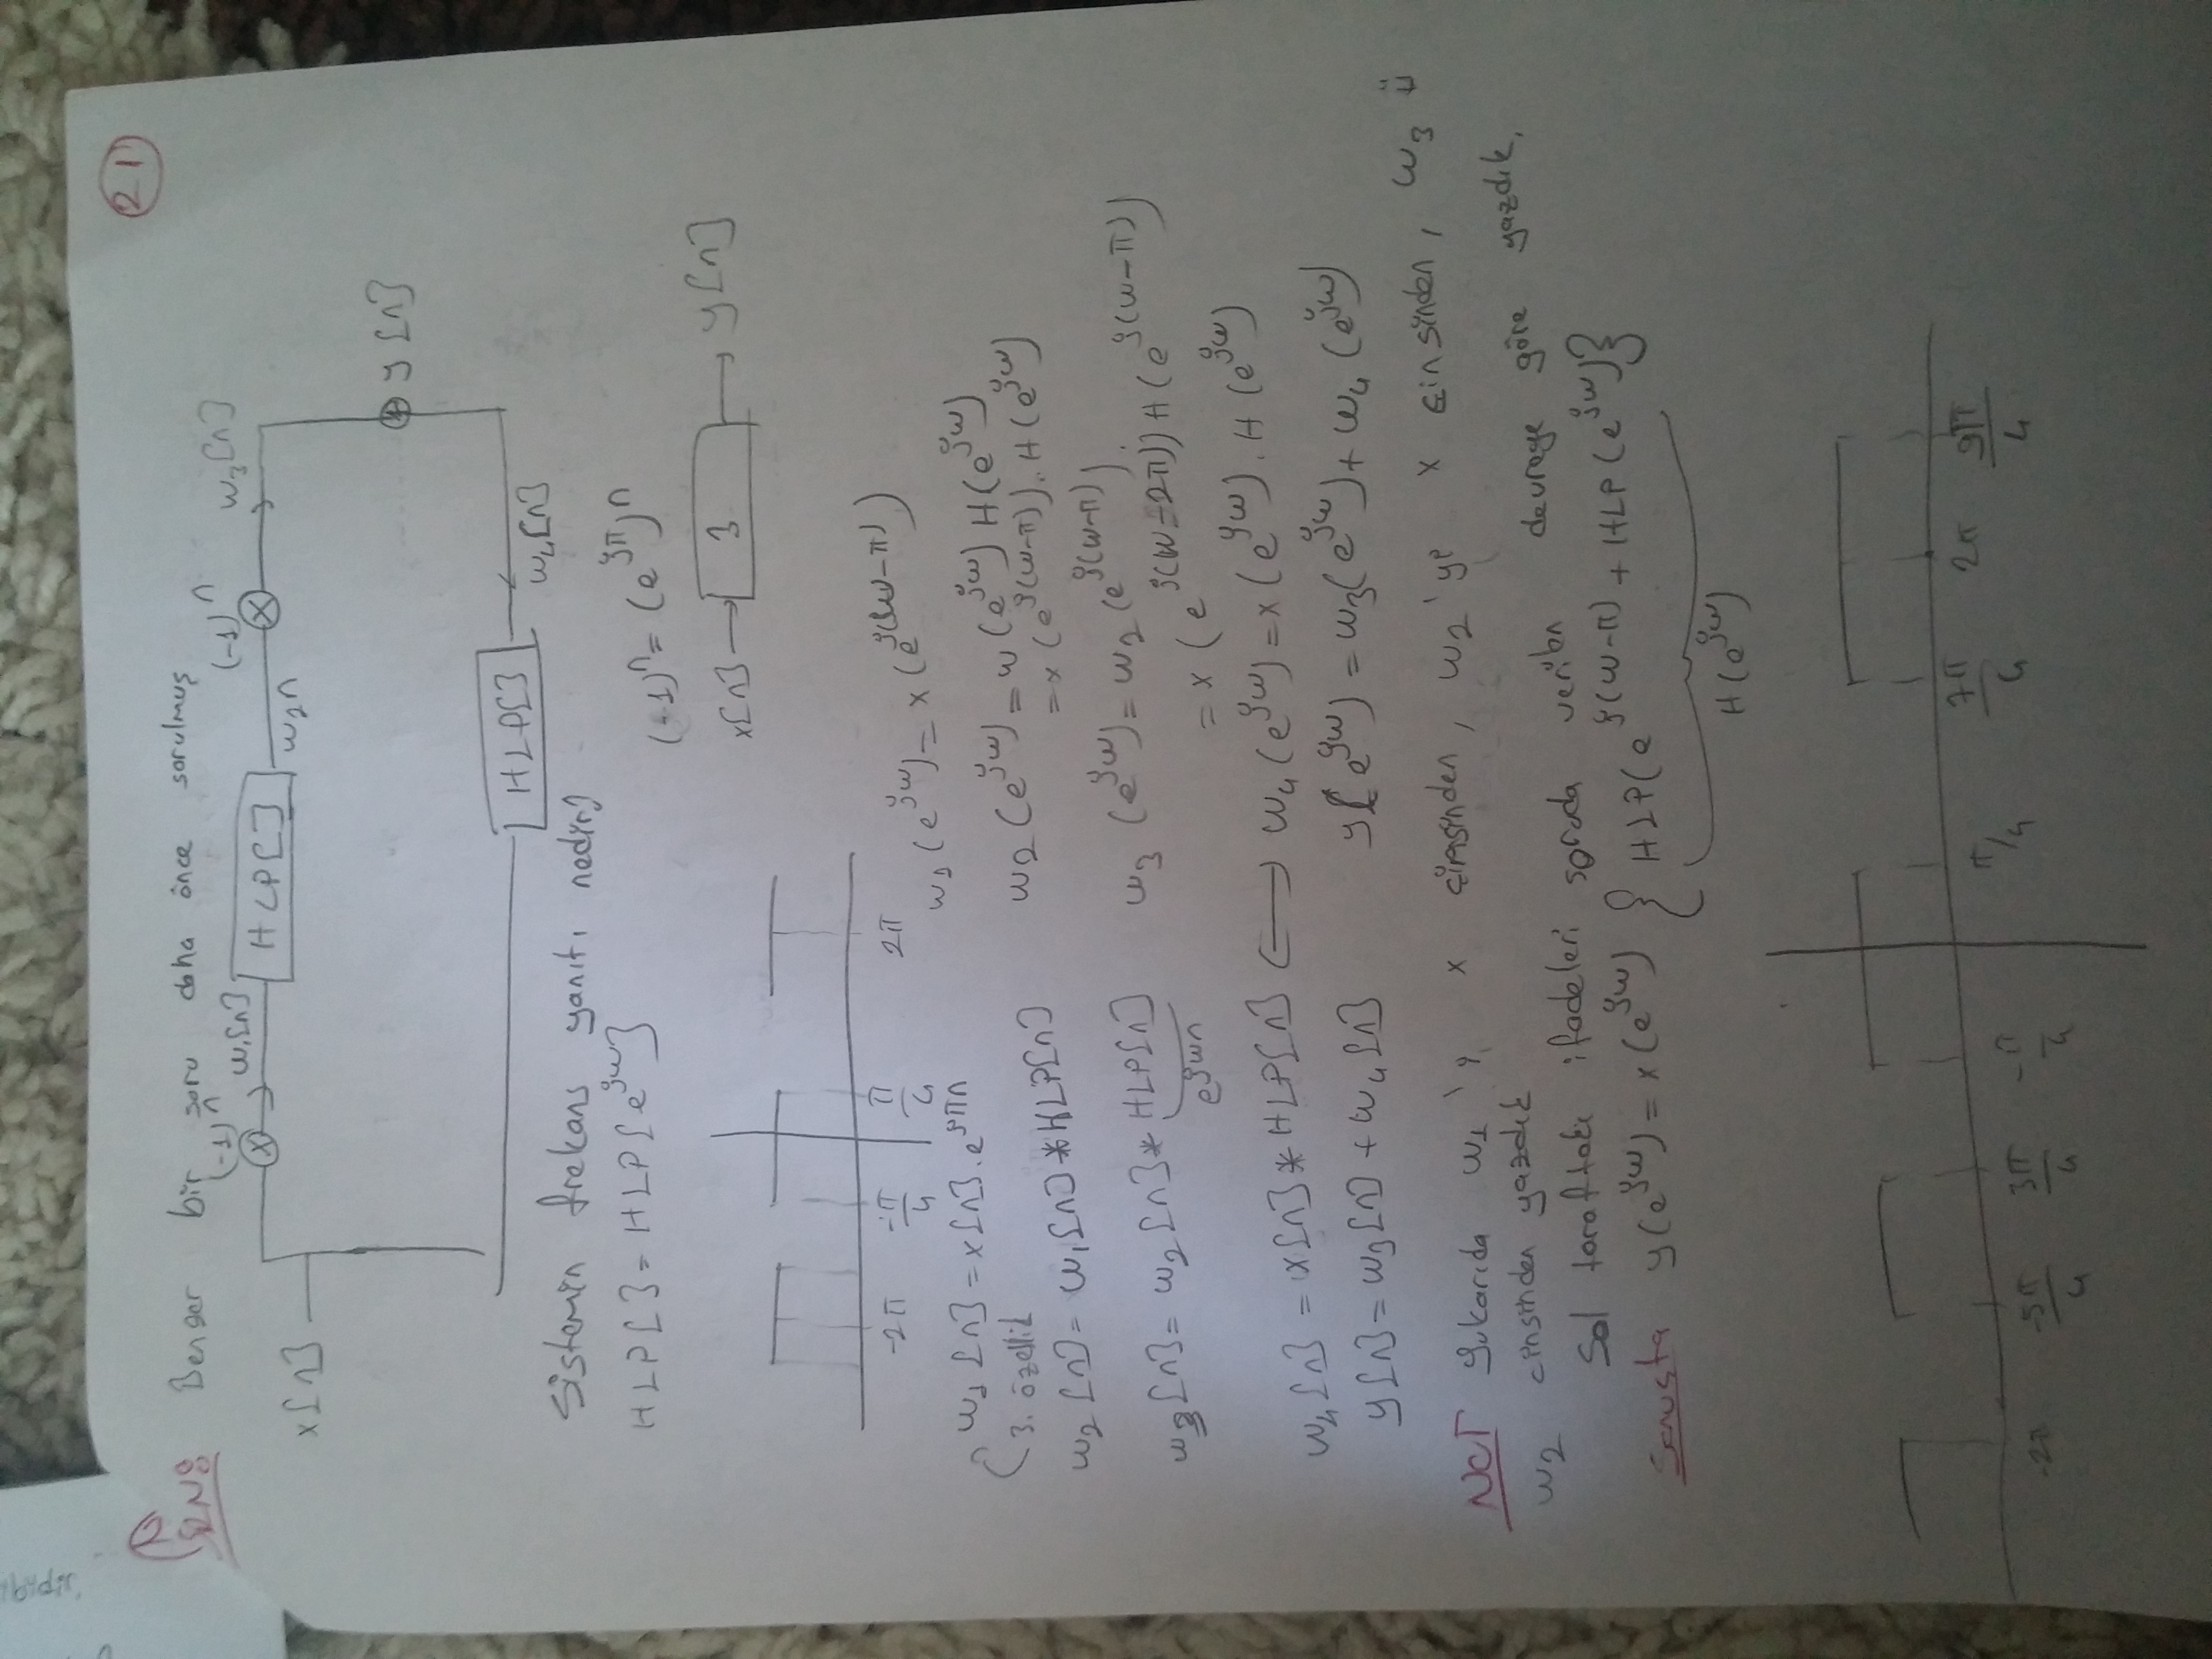 ÖRN: Benzer bir soru daha önce sorulmuş
21
x[n]
(-1)ⁿ
w₁[n]
HLP[]
w₂n
(-1)ⁿ
w₃[n]
y[n]
HLP[]
w₄[n]
Sistemin frekans yanıtı nedir?
HLP[] = HLP[e^jw]
(-1)ⁿ = (e^jπ)n
x[n] → 3 → y[n]
-2π -π/4 π/4 2π
w₁[n] = x[n].e^jπn
w₁(e^jw) = x(e^j(w-π))
(3. özellik
w₂[n] = w₁[n]*HLP[n]
w₂(e^jw) = w(e^jw)H(e^jw)
= x(e^j(w-π)).H(e^jw)
w₃[n] = w₂[n]*HLP[n]
e^jwn
w₃(e^jw) = w₂(e^j(w-π))
= x(e^j(w-2π))H(e^j(w-π))
w₄[n] = x[n]*HLP[n] ⟷ w₄(e^jw) = x(e^jw).H(e^jw)
y[n] = w₃[n] + w₄[n]
y(e^jw) = w₃(e^jw) + w₄(e^jw)
NOT yukarıda w₁'i x cinsinden, w₂'yi x cinsinden, w₃ ü
w₂ cinsinden yazdık
Sol taraftaki ifadeleri soruda verilen devreye göre yazdık.
Sonuçta y(e^jw) = x(e^jw) { HLP(e^j(w-π) + HLP(e^jw)}
H(e^jw)
-2π -5π/4 3π/4 -π/4 π/4 7π/4 2π 9π/4